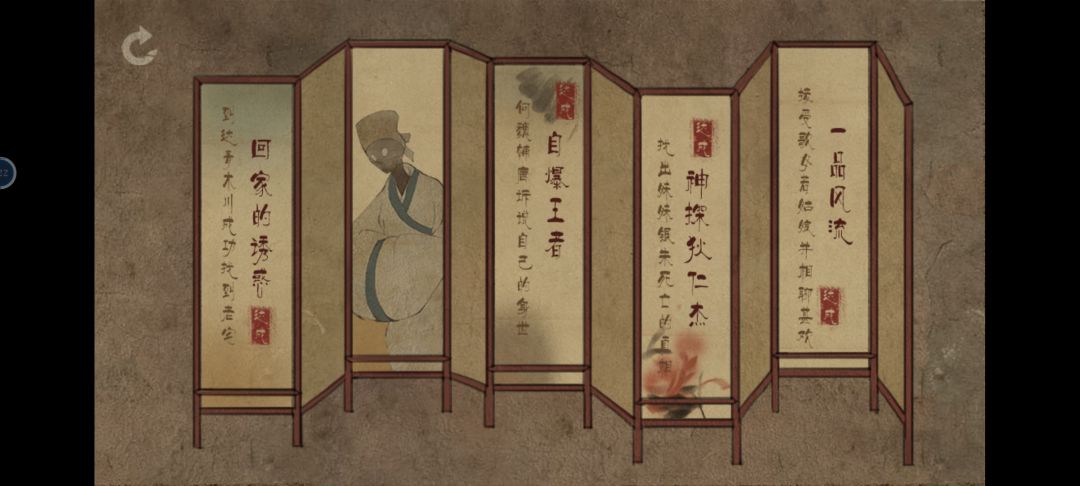 回家的诱惑
达成
到达子木川成功找到老宅
达成
自爆王者
向魏辅唐诉说自己的身世
达成
神探狄仁杰
找出妹妹银朱死亡的真相
一品风流
达成
接受歌 相聊甚欢